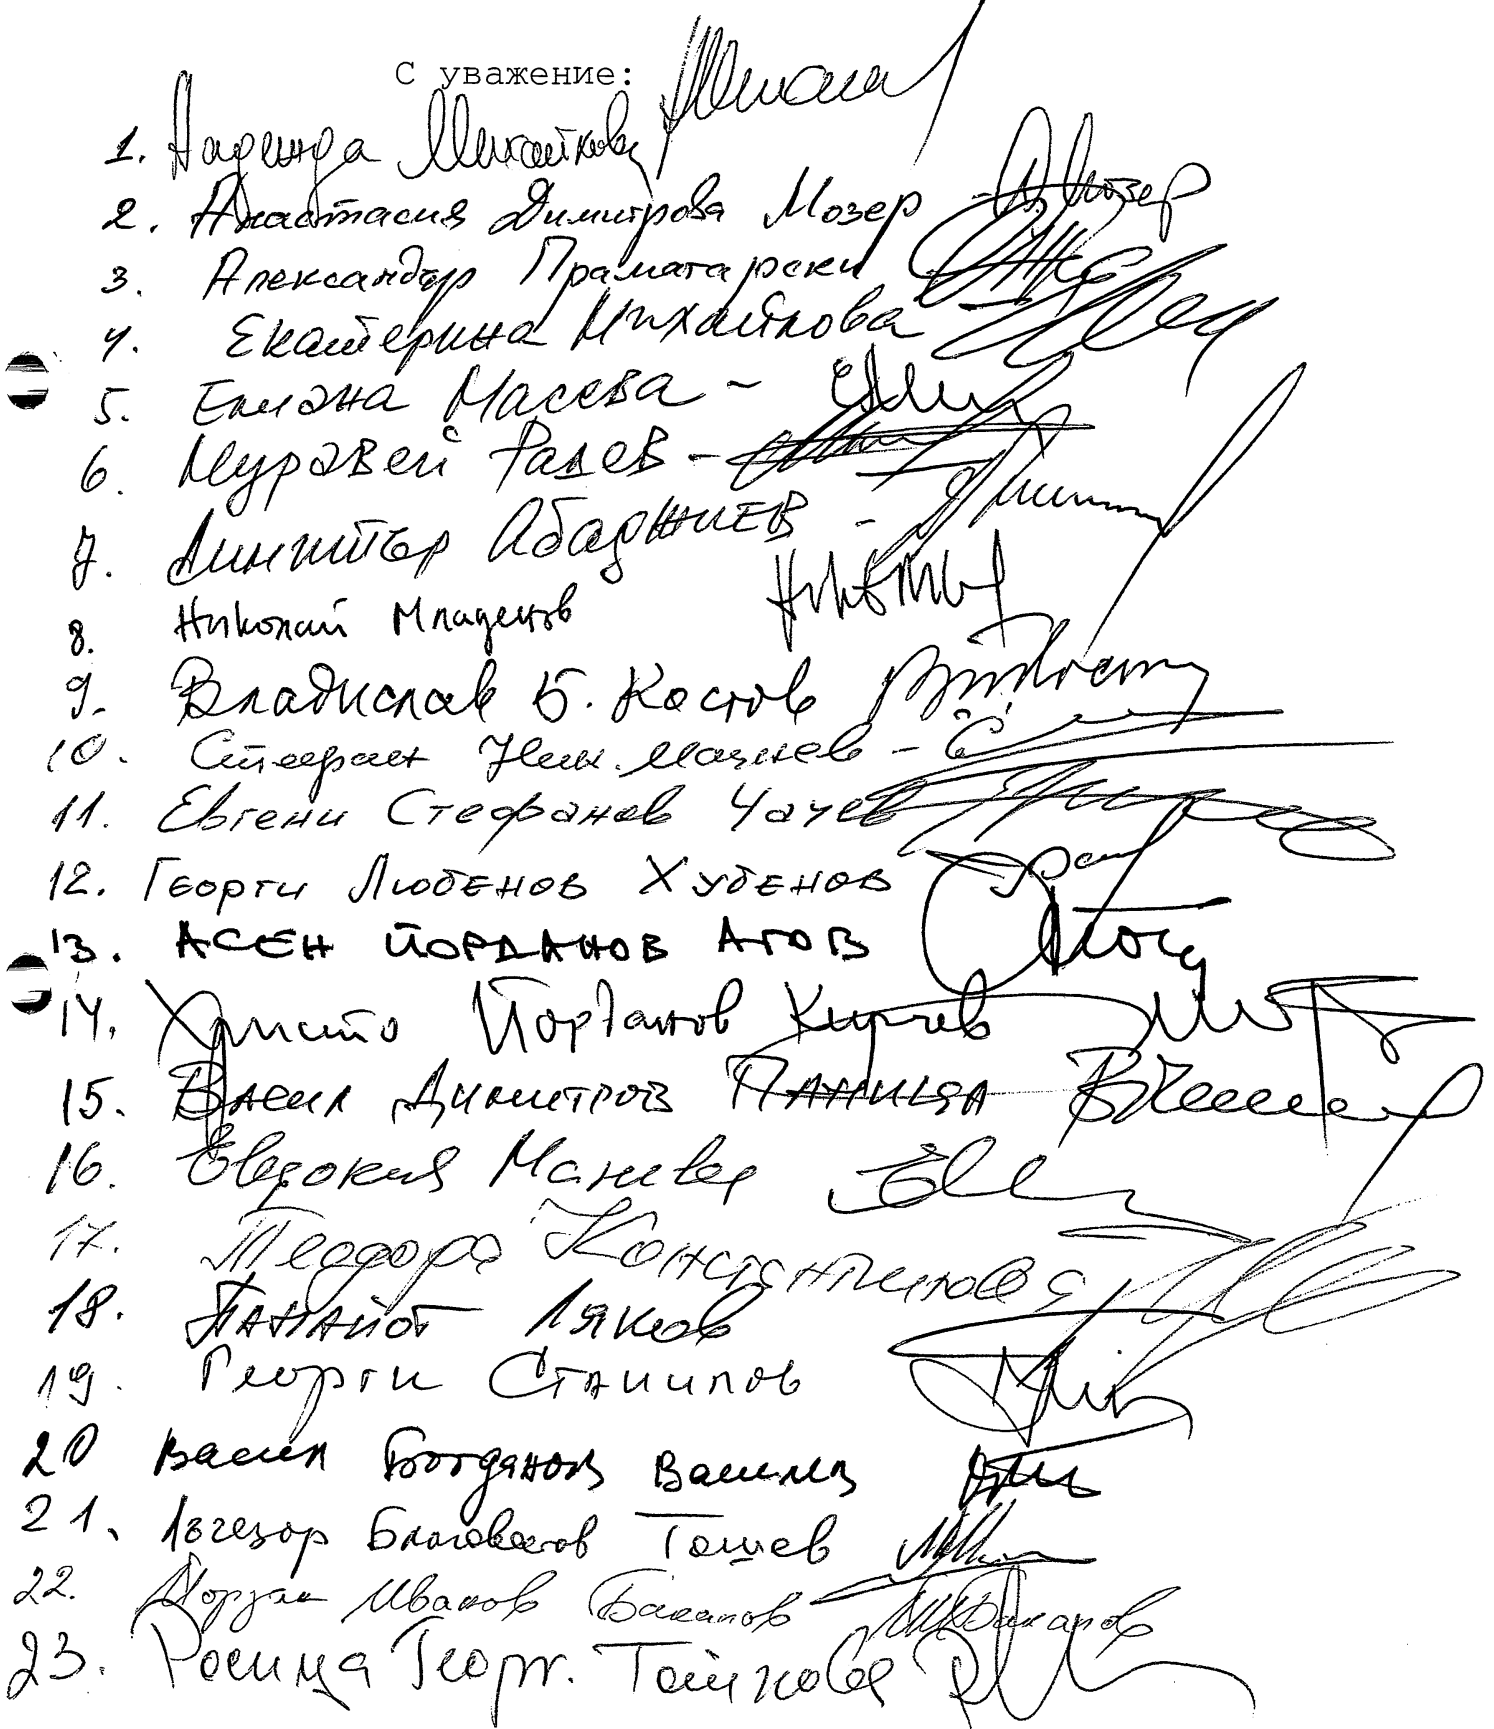 С уважение:
1. Надежда Михайлова
2. Анастасия Димитрова Мозер - А. Мозер
3. Александър Праматарски
4. Екатерина Михайлова
5. Елиана Масева -
6. Муравей Радев -
7. Димитър Абаджиев -
8. Николай Младенов
9. Владислав Б. Костов
10. Стефан Ник. Мазнев -
11. Евгени Стефанов Чачев
12. Георги Любенов Хубенов
13. АСЕН ЙОРДАНОВ АГОВ
14. Христо Йорданов Кирчев
15. Васил Димитров Паница
16. Евдокия Манева
17. Теодора Константинова
18. Панайот Ляков
19. Георги Станилов
20 Васил Богданов Василев
21. Лъчезар Благовестов Тошев
22. Йордан Иванов Бакалов Бакалов
23. Росица Георг. Тоткова